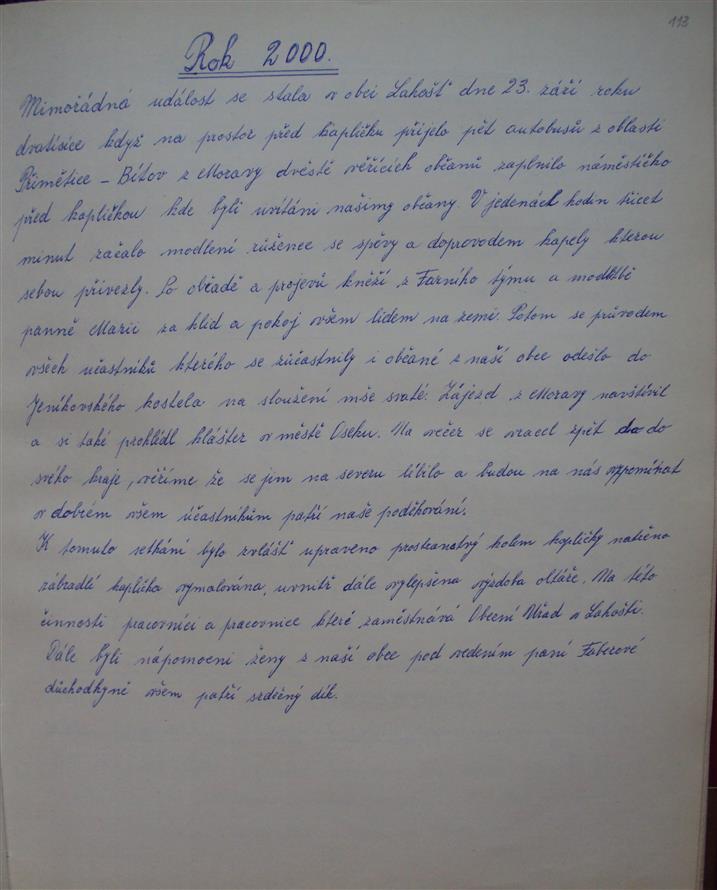 113
Rok 2000.
Mimořádná událost se stala v obci Lahošť dne 23. září roku
dvatisíce když na prostor před kapličku přijelo pět autobusů z oblasti
Přímětice - Bítov z Moravy dvěstě věřících občanů zaplnilo náměstíčko
před kapličkou kde byli uvítáni našimy občany. V jedenáct hodin třicet
minut začalo modlení růžence se spěvy a doprovodem kapely kterou
sebou přivezly. Po obřadě a projevů kněží z Farního týmu a modlitbě
panně Marii za klid a pokoj všem lidem na zemi. Potom se průvodem
všech učastníků kterého se zůčastnily i občané z naší obce odešlo do
Jeníkovského kostela na sloužení mše svaté. Zájezd z Moravy navštívil
a si také prohlídl klášter v městě Oseku. Na večer se vracel zpět do
svého kraje, věříme že se jim na severu líbilo a budou na nás vzpomínat
v dobrém všem účastníkům patří naše poděkování.
K tomuto setkání bylo zvlášť upraveno prostranstvý kolem kapličky natřeno
zábradlí kaplička vymalována, uvnitř dále vylepšena výzdoba oltáře. Na této
činnosti pracovníci a pracovnice které zaměstnává Obecní Úřad v Lahošti.
Dále byli nápomocni ženy z naší obce pod vedením paní Faberové
důchodkyně všem patří srdečný dík.